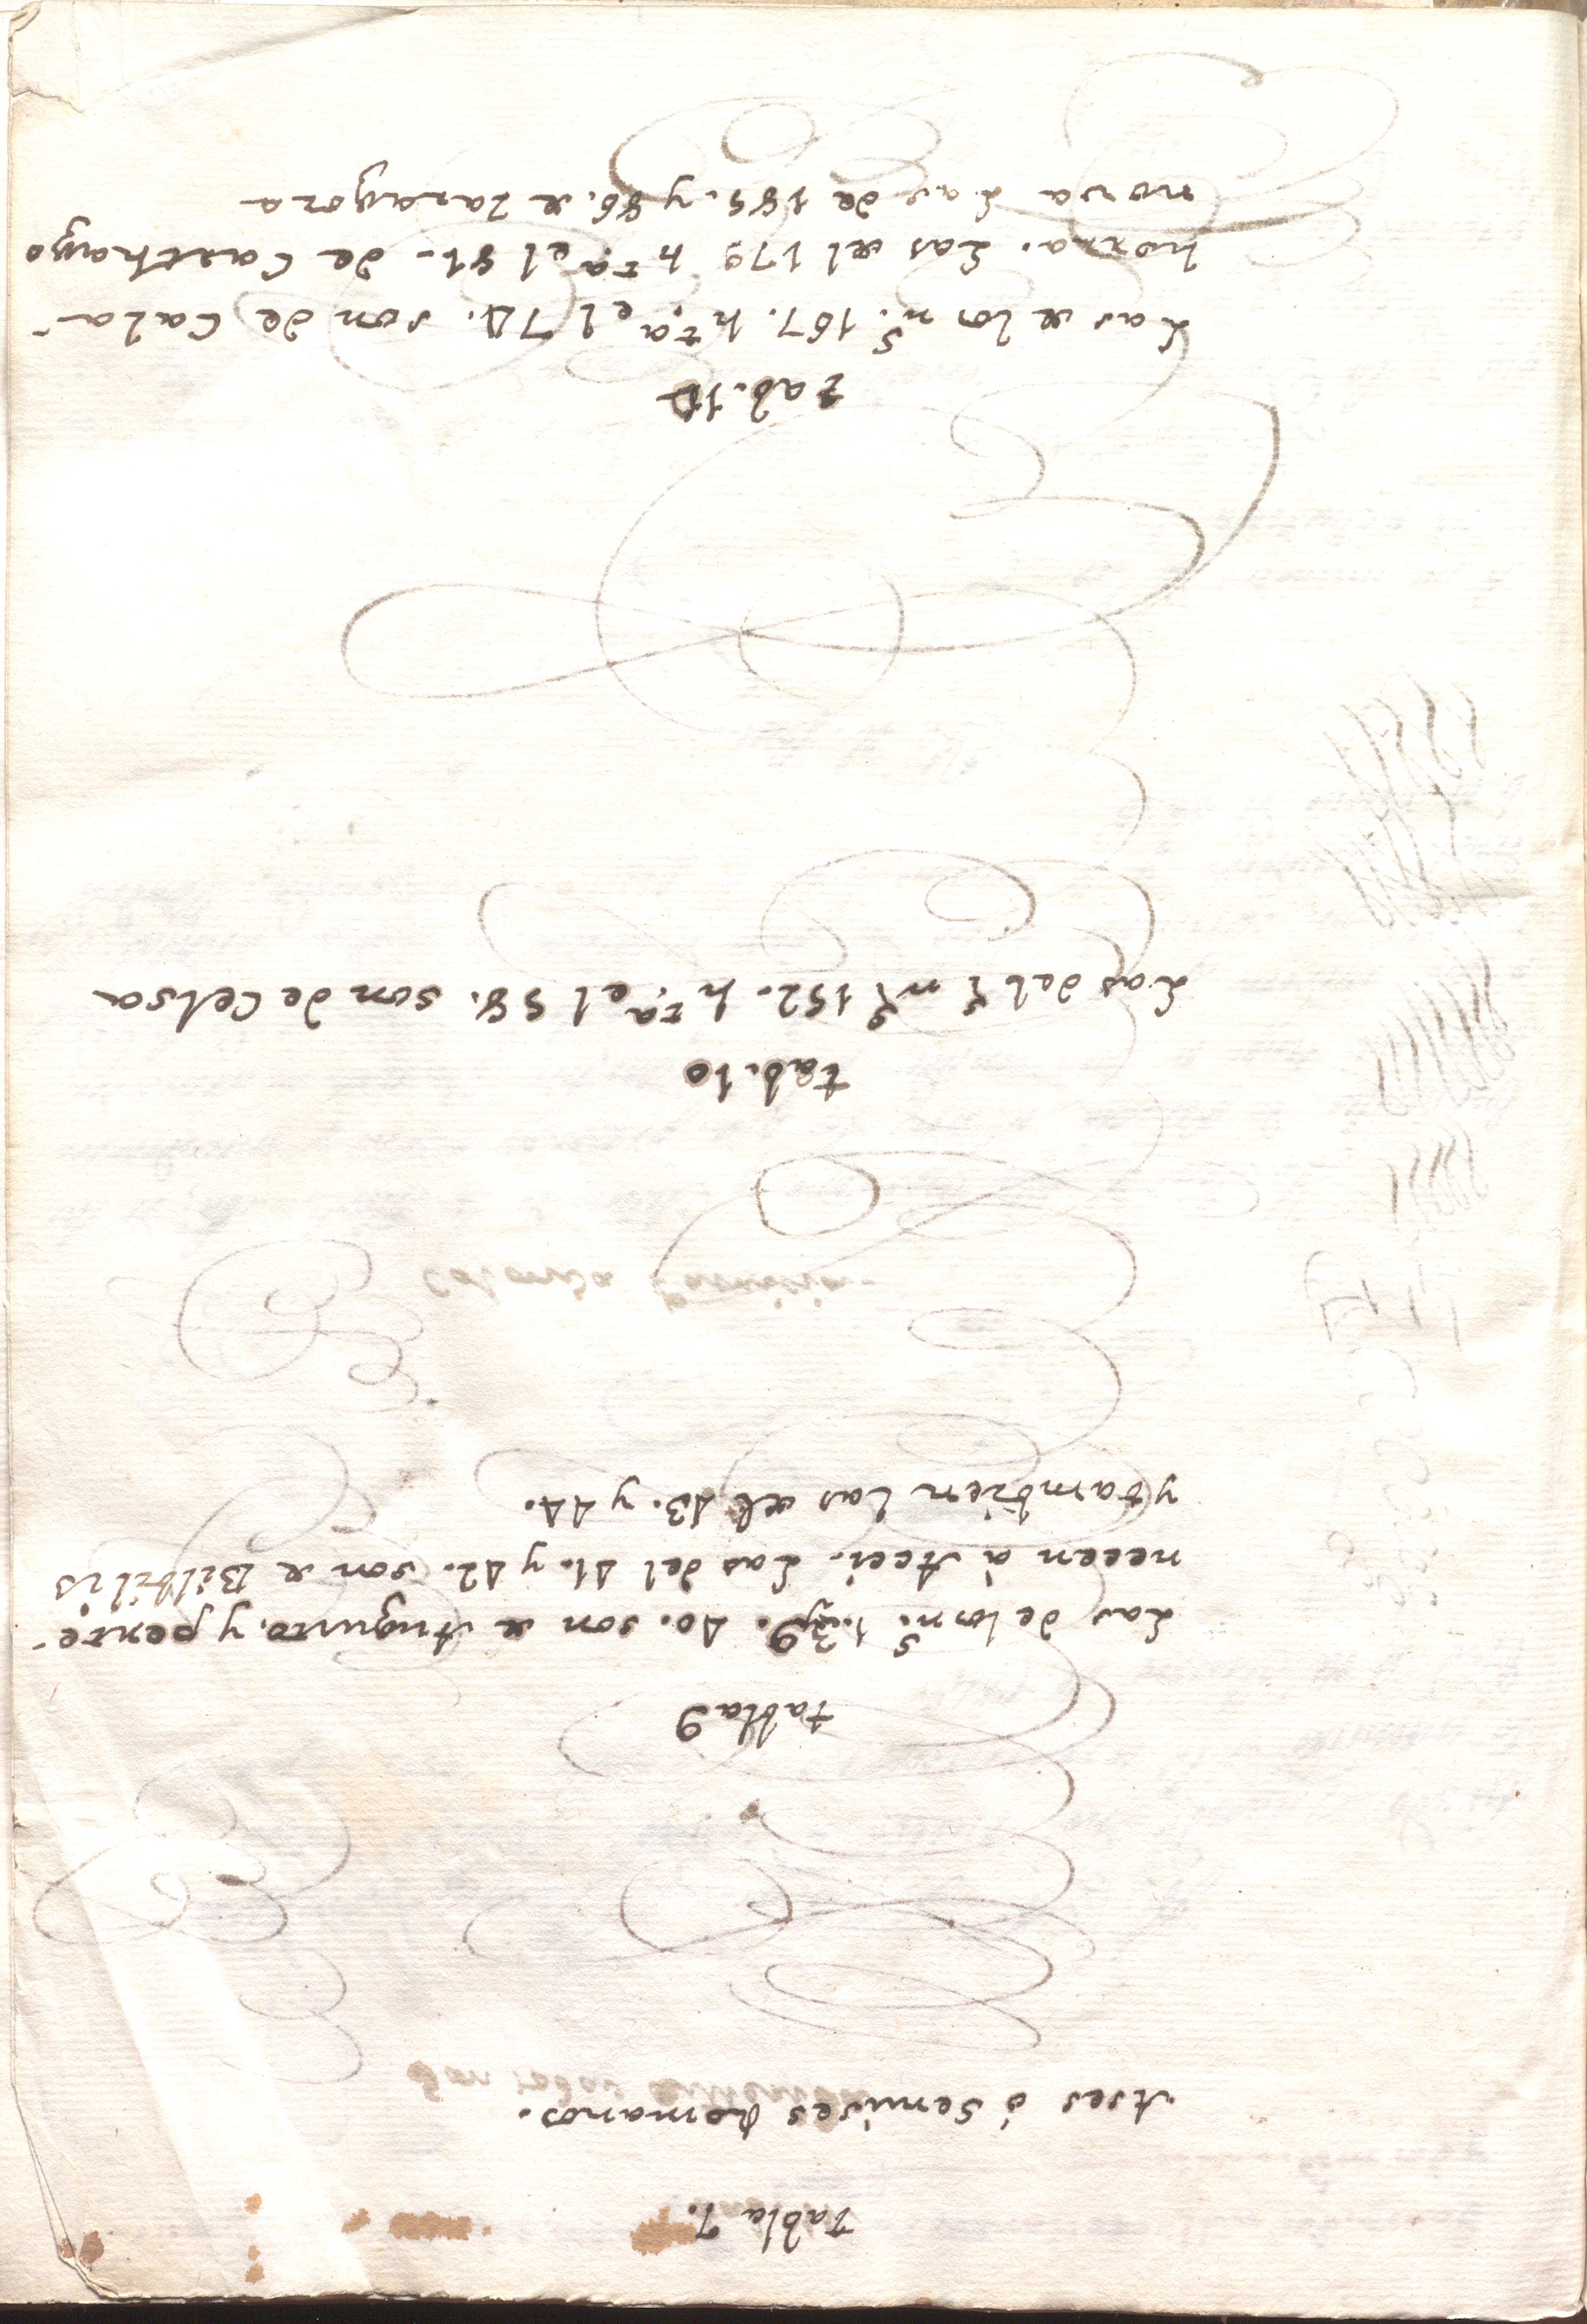 tabla 7.
Ases ó Semises Romanos.
tabla 9
Las de los n.s 139. 40. son de Augusto, y perte-
necen à Acci. Las del 41. y 42. son de Bilbilis
y tambien las del 43. y 44.
Colonia
tab. 10
Las del n.º 152. hta el 58. son de Celsa
tab. 11
Las de los n.s 167. hta el 74. son de Cala-
horra. Las del 179 hta el 81. de Carthago
nova Las de 185. y 86. de Zaragoza